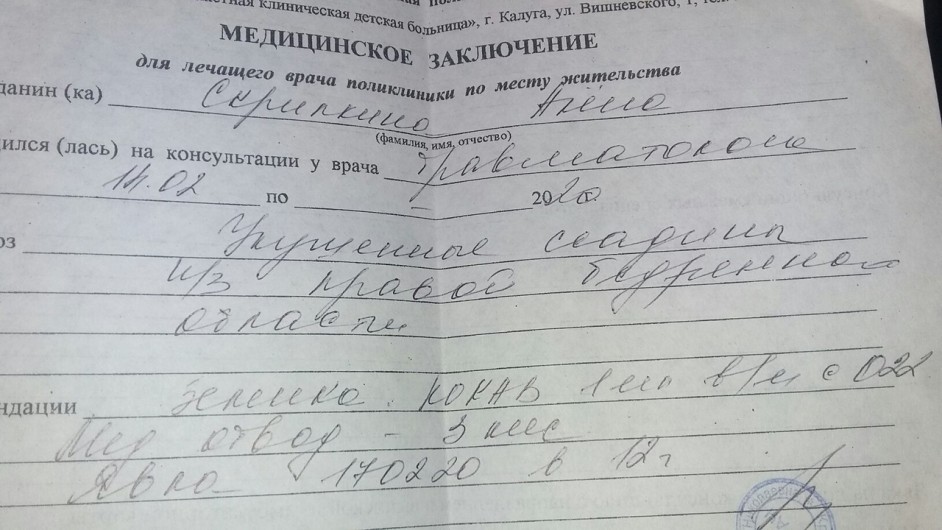 клиническая детская больница», г. Калуга, ул. Вишневского, 1, тел.
МЕДИЦИНСКОЕ ЗАКЛЮЧЕНИЕ
для лечащего врача поликлиники по месту жительства
данин (ка) Скрипкина Анна
(фамилия, имя, отчество)
ился (лась) на консультации у врача травматолога
14.02 по – 2020 г.
оз Укушенные ссадины
н/з правой бедренной
области
ндации Зеленка. КОКАВ 1 мл в/м с 022
Мед отвод – 3 мес
Явка 170220 в 12 г